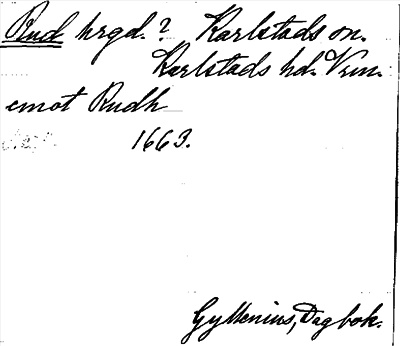 Rud hrgd. ? Karlstads sn.
Karlstads hd. Vrm.
emot Rudh
1663.
Gyllenius, Dagbok.